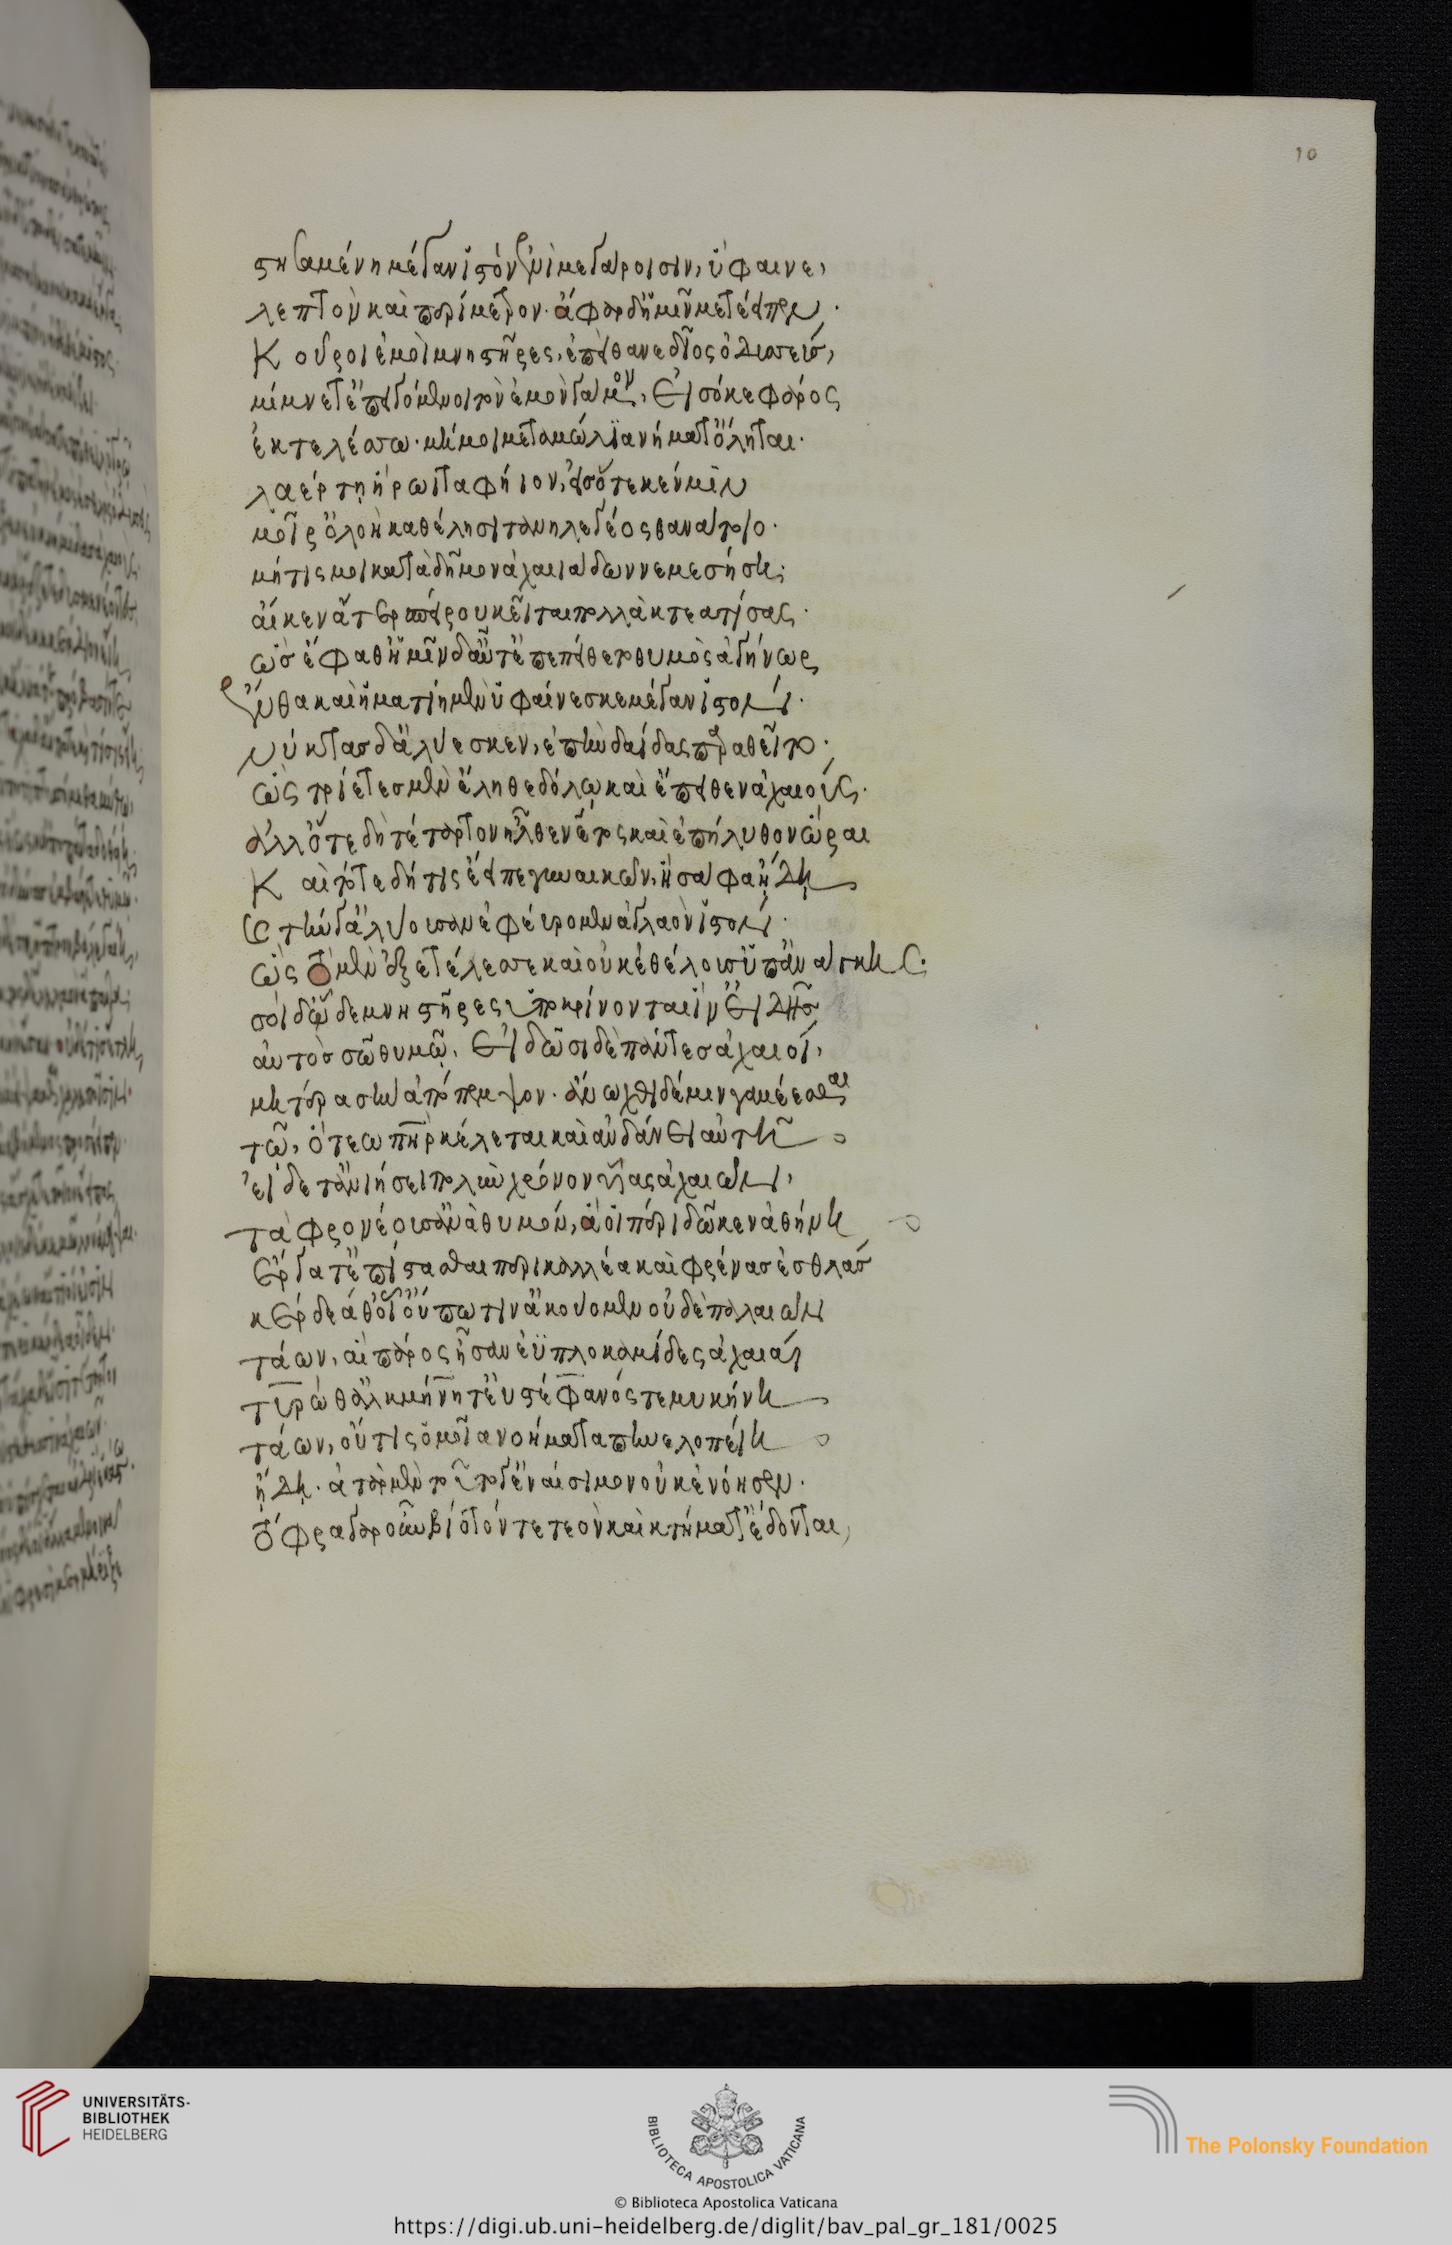 στησαμένη μέγαν ἱστὸν ἐνὶ μεγάροισιν, ὕφαινε,
λεπτὸν καὶ περίμετρον· ἄφαρ δ' ἡμῖν μετέειπεν·
Κοῦροι ἐμοὶ μνηστῆρες, ἐπεὶ θάνε δῖος ὀδυσσεύς,
μίμνετ' ἐπειγόμενοι τὸν ἐμὸν γάμον, εἰσόκε φάρος
ἐκτελέσσω· μή μοι μεταμώλϊα νήματ' ὄληται·
λαέρτῃ ἥρωϊ ταφήϊον, εἰσότε κέν μιν
μοῖρ' ὀλοὴ καθέλησι τανηλεγέος θανάτοιο·
μήτις μοι κατὰ δῆμον ἀχαιϊάδων νεμεσήσῃ·
αἴκεν ἄτερ σπείρου κεῖται πολλὰ κτεατίσας·
ὣς ἔφαθ' ἡμῖν δ' αὖτ' ἐπεπείθετο θυμὸς ἀγήνωρ
ἔνθα καὶ ἠματίη μὲν ὑφαίνεσκε μέγαν ἱστόν·
νύκτας δ' ἀλύεσκεν, ἐπὴν δαΐδας παραθεῖτο·
ὣς τρίετες μὲν ἔληθε δόλῳ καὶ ἔπειθεν ἀχαιούς·
ἀλλ' ὅτε δὴ τέταρτον ἦλθεν ἔτος καὶ ἐπήλυθον ὧραι
Καὶ τότε δή τις ἔειπε γυναικῶν, ἣ σάφα ᾔδη
καὶ τήν γ' ἀλύουσαν ἐφεύρομεν ἀγλαὸν ἱστόν·
ὣς τὸ μὲν ἐξετέλεσσε καὶ οὐκ ἐθέλουσ' ὑπ' ἀνάγκης·
σοὶ δ' ὧδε μνηστῆρες ὑποκρίνονται ἵν' εἰδῇς
αὐτὸς σῷ θυμῷ, εἰδῶσι δὲ πάντες ἀχαιοί,
μητέρα σὴν ἀπόπεμψον· ἄνωχθι δέ μιν γαμέεσθαι
τῷ, ὅτεῳ πατὴρ κέλεται καὶ ἁνδάνει αὐτῇ
εἰ δέ τ' ἀνιήσει πολὺν χρόνον υἷας ἀχαιῶν,
τὰ φρονέουσ' ἀνὰ θυμόν, ἅ οἱ πέρι δῶκεν ἀθήνη
ἔργα τ' ἐπίστασθαι περικαλλέα καὶ φρένας ἐσθλάς
κέρδεά θ' οἷ' οὔπω τιν' ἀκούομεν οὐδὲ παλαιῶν
τάων, αἳ πάρος ἦσαν ἐϋπλοκαμίδες ἀχαιαί
τυρώ θ' ἀλκμήνη τ' ἐυστέφανός τε μυκήνη
τάων, οὔτις ὁμοῖα νοήματα πηνελοπείη
ᾔδη· ἀτὰρ μὲν τοῦτό γ' ἐναίσιμον οὐκ ἐνόησεν·
τόφρα γὰρ οὖν βίοτόν τε τεὸν καὶ κτήματ' ἔδονται,
10
UNIVERSITÄTS-
BIBLIOTHEK
HEIDELBERG
BIBLIOTECA APOSTOLICA VATICANA
The Polonsky Foundation
© Biblioteca Apostolica Vaticana
https://digi.ub.uni-heidelberg.de/diglit/bav_pal_gr_181/0025